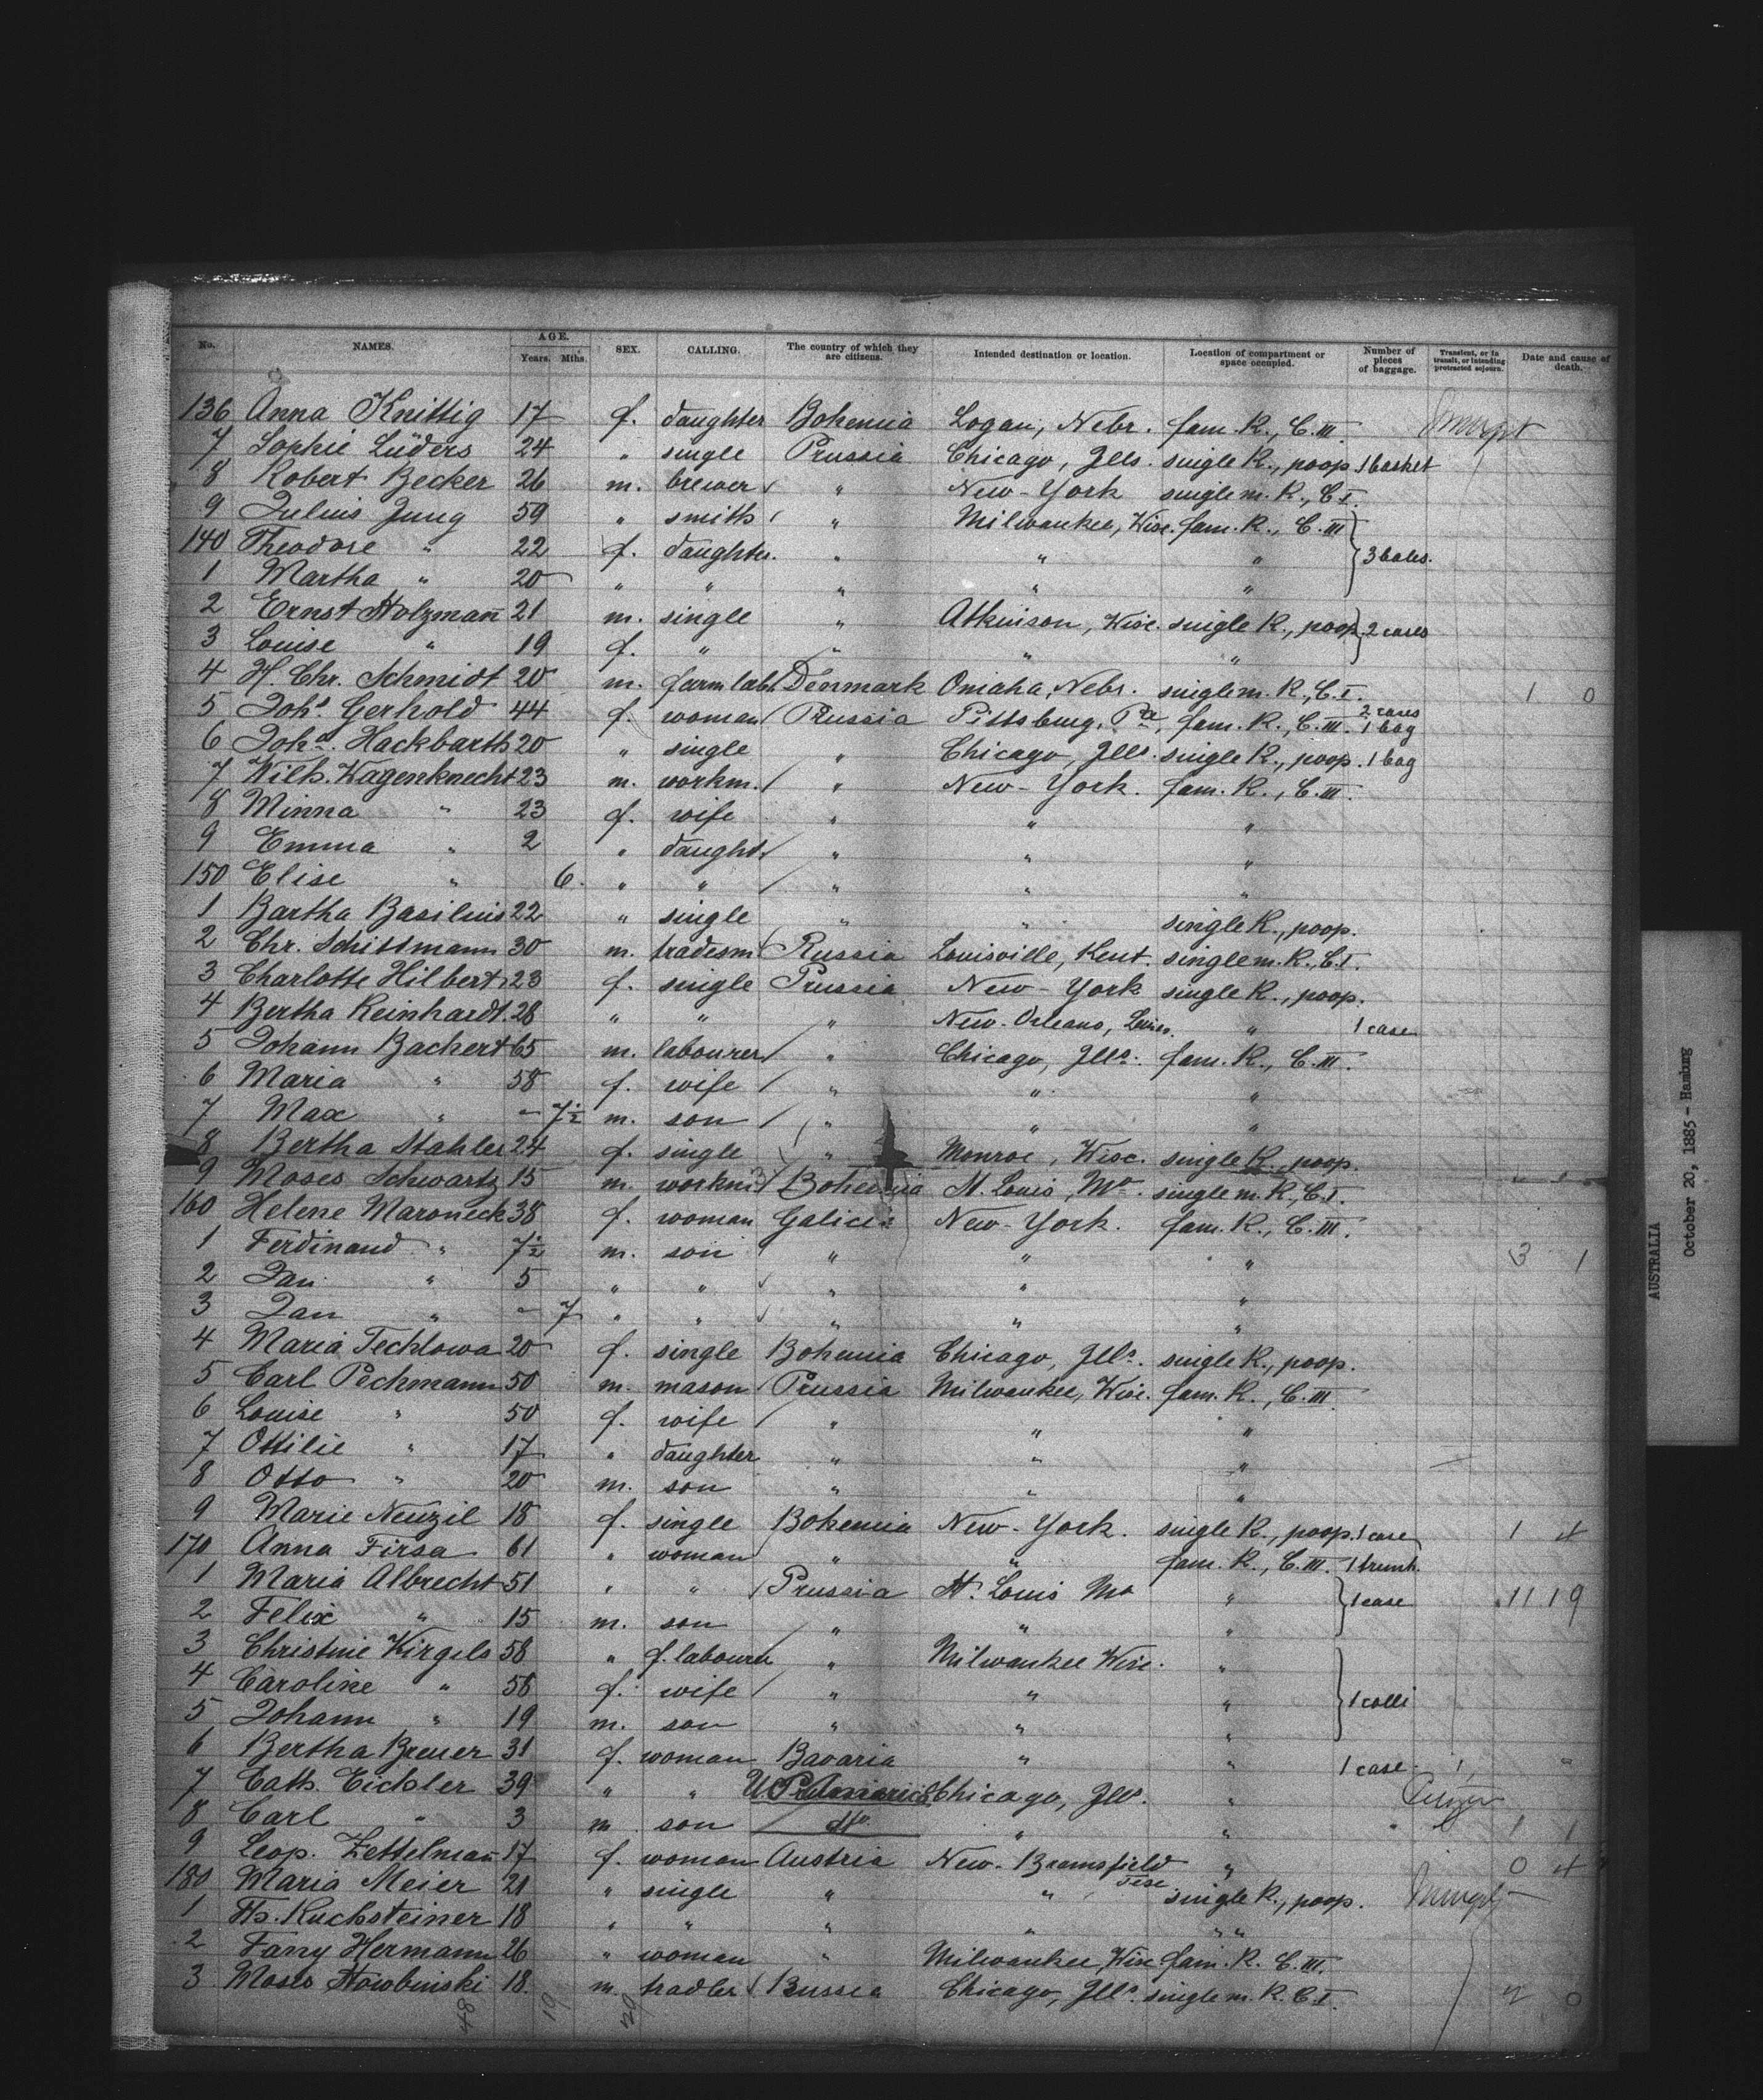 No. NAMES. AGE. Years. Mths. SEX. CALLING. The country of which they are citizens. Intended destination or location. Location of compartment or space occupied. Number of pieces of baggage. Transient, or in transit, or intending protracted sojourn. Date and cause of death.
136 Anna Knittig 17 f. daughter Bohemia Logan, Nebr. fam. R., C. III.
7 Sophie Lüders 24 " single Prussia Chicago, Ills. single R., poop 1 basket
8 Robert Becker 26 m. brewer " New-York single m. R., C. I.
9 Julius Jung 59 " smith " Milwaukee, Wisc. fam. R., C. III
140 Theodore " 22 f. daughter. " " " 3 bales.
1 Martha " 20 " " " " "
2 Ernst Holzmañ 21 m. single " Atkinson, Wisc. single R., poop. 2 cases
3 Louise " 19 f. " " " "
4 H. Chr. Schmidt 20 m. farm lab. Denmark Omaha, Nebr. single m. R., C. I. 1 0
5 Johs. Gerhold 44 f. woman Prussia Pittsburg, Pa, fam. R., C. III. 2 cases 1 bag
6 Joha. Hackbarth 20 " single " Chicago, Ills. single R., poop. 1 bag
7 Wilh. Wagenknecht 23 m. workm. " New-York. fam. R., C. III.
8 Minna " 23 f. wife " " "
9 Emma " 2 " daught. " " "
150 Elise " 6. " " " " "
1 Bartha Basilius 22 " single " " single R., poop.
2 Chr. Schittmann 30 m. tradesm Russia Louisville, Kent. single m. R., C. I.
3 Charlotte Hilbert 23 f. single Prussia New-York single R., poop.
4 Bertha Reinhardt. 28 " " " New-Orleans, " 1 case
5 Johann Bachert 65 m. labourer " Chicago, Ills. fam. R., C. III.
6 Maria " 58 f. wife " " "
7 Max " - 7½ m. son " " "
8 Bertha Stahler 24 f. single " Monroe, Wisc. single R., poop.
9 Moses Schwartz 15 m. workm Bohemia St. Louis, Mo. single m. R., C. I.
160 Helene Maroneck 38 f. woman Galicia New-York. fam. R., C. III.
1 Ferdinand " 7½ m. son " " " 3 1
2 Jan " 5 " " " " "
3 Jan " - 7 " " " " "
4 Maria Techlowa 20 f. single Bohemia Chicago, Ills. single R., poop.
5 Carl Pechmann 50 m. mason Prussia Milwaukee, Wisc. fam. R., C. III.
6 Louise " 50 f. wife " " "
7 Ottilie " 17 " daughter " " "
8 Otto " 20 m. son " " "
9 Marie Neuzil 18 f. single Bohemia New-York. single R., poop. 1 case 1 4
170 Anna Firsa 61 " woman " " fam. R., C. III. 1 trunk.
1 Maria Albrecht 51 " " Prussia St. Louis Mo " 1 case 11 19
2 Felix " 15 m. son " " "
3 Christine Kirgils 58 " f. labourer " Milwaukee Wisc. "
4 Caroline " 58 f. wife " " " 1 colli
5 Johann " 19 m. son " " "
6 Bertha Breuer 31 f. woman Bavaria " " 1 case
7 Cath. Eichler 39 " " U. S. America Chicago, Ills. "
8 Carl " 3 m son do " " 1 1
9 Leop. Zettelmañ 17 f. woman Austria New-Bramsfield " 0 4
180 Maria Meier 21 " single " " single R., poop.
1 Ths. Ruchsteiner 18 " " " " " "
2 Fany Hermann 26 " woman " Milwaukee, Wisc fam. R. C. III.
3 Moses Nowbinski 18. m. tradler Russia Chicago, Ills. single m. R. C. I.
AUSTRALIA
October 20, 1885 - Hamburg